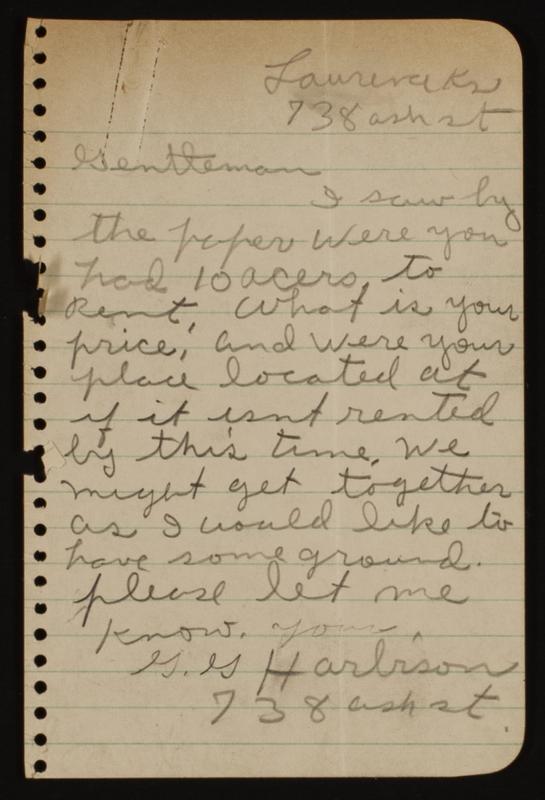 Laurence Ks
738 ash st
Gentleman
I saw by
the paper were you
had 10 acers, to
Rent, What is your
price, and were your
place located at
if it isnt rented
by this time, we
might get together
as I would like to
have some ground.
please let me
know. your,
G. G Harbison
738 ash st.